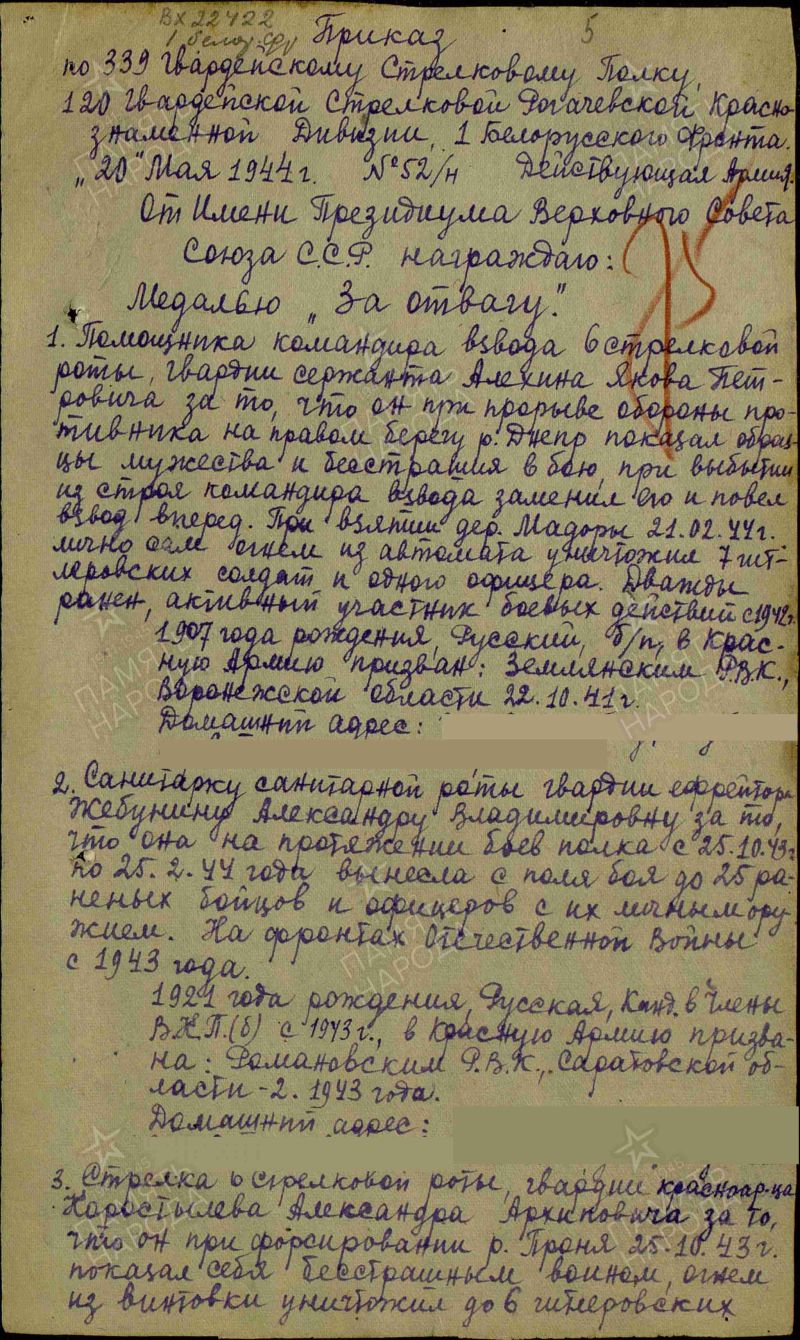 Вх 22422
1 белор. фр
5
Приказ
по 339 Гвардейскому Стрелковому Полку,
120 Гвардейской Стрелковой Рогачевской Красно-
знаменной Дивизии, 1 Белорусского Фронта.
„20" Мая 1944г. №52/н Действующая Армия.
От Имени Президиума Верховного Совета
Союза С.С.Р. награждаю:
Медалью „За отвагу".
1. Помощника командира взвода 6 стрелковой
роты, гвардии сержанта Алехина Якова Пет-
ровича за то, что он при прорыве обороны про-
тивника на правом берегу р. Днепр показал образ-
цы мужества и бесстрашия в бою, при выбытии
из строя командира взвота заменил его и повел
взвод вперед. При взятии дер. Мадоры 21.02.44г.
лично сам огнем из автомата уничтожил 7 гит-
леровских солдат и одного офицера. Дважды
ранен, активный участник боевых действий с 1942г.
1907 года рождения, Русский, б/п, в Крас-
ную Армию призван: Землянским Р.В.К.,
Воронежской области 22.10.41г.
Домашний адрес:
2. Санитарку санитарной роты гвардии ефрейтора
Жебунину Александру Владимировну за то,
что она на протяжении боев полка с 25.10.43г
по 25.2.44 года вынесла с поля боя до 25 ра-
неных бойцов и офицеров с их личным ору-
жием. На фронтах Отечественной Войны
с 1943 года.
1921 года рождения, Русская, Канд. в члены
В.К.П.(б) с 1943г., в Красную Армию призва-
на: Романовским Р.В.К., Саратовской об-
ласти - 2. 1943 года.
Домашний адрес:
3. Стрелка 6 стрелковой роты, гвардии красноар-ца
Каростылева Александра Архиповича за то,
что он при форсировании р. Проня 25.10.43г.
показал себя бесстрашным воином, огнем
из винтовки уничтожил до 6 гитлеровских
ПАМЯТЬ
НАРОДА